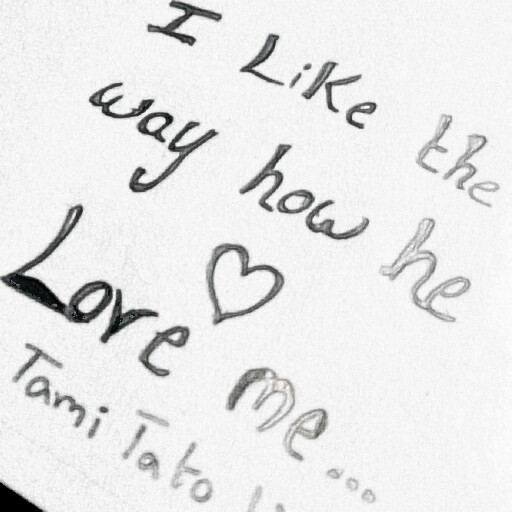 I Like the
way how he
Love me...
Tami Tato